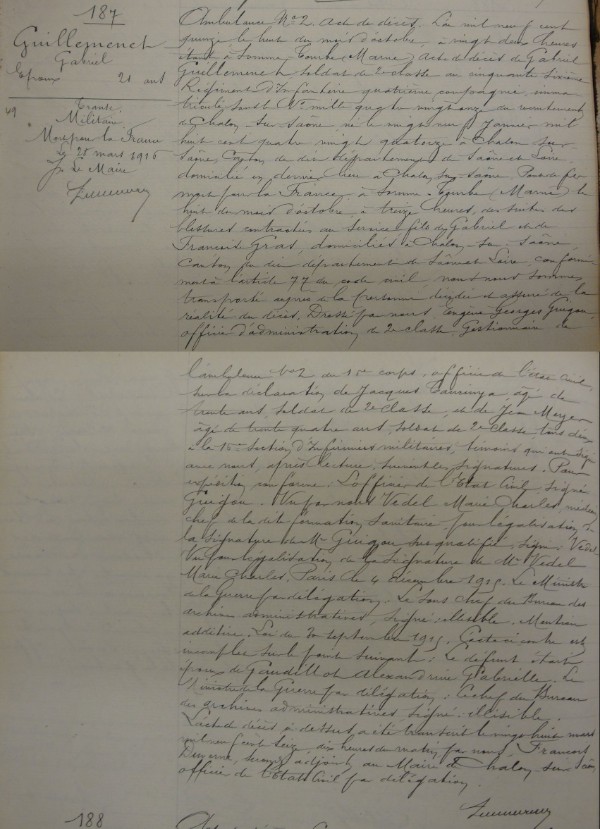 187
Guillemenet
Gabriel
Epoux 21 ans
49
Transc.
Militaire
Mort pour la France
Le 28 mars 1916
Le Maire
Ambulance No 2. Acte de décès. L'an mil neuf cent
quinze le huit du mois d'octobre, à vingt deux heures
étant à Somme Tourbe (Marne) Acte de décès de Gabriel
Guillemenet soldat de 2e classe au cinquante sixième
Régiment d'Infanterie quatrième compagnie, imma
de Chalon sur Saône né le vingt neuf Janvier mil
huit cent quatre vingt quatorze à Chalon sur
Saône, Canton du dit département de Saône et Loire
domicilié en dernier lieu à Chalon sur Saône
mort pour la France, à Somme-Tourbe (Marne) le
huit du mois d'octobre, à treize heures, des suites des
blessures contractées au Service, fils de Gabriel et de
Gras, domiciliés à Chalon sur Saône
Canton du dit département de Saône et Loire, conformé
ment à l'article 77 du code civil, nous nous sommes
transporté auprès de la personne décédée et assuré de la
réalité du décès. Dressé par nous, Eugène Georges
officier d'administration de 2e classe Gestionnaire de
l'ambulance No 2 du corps, officier de l'état civil,
sur la déclaration de Jacques âgé de
trente ans, soldat de 2e classe, et de Jean
âgé de trente quatre ans, soldat de 2e classe tous deux
à la section d'Infirmiers militaires, témoins qui ont signé
avec nous, après lecture. Suivent les signatures. Pour
expédition conforme. L'officier de l'Etat Civil signé
Vu par nous Vedel Marie Charles, médecin
chef de la dite formation sanitaire, pour légalisation de
la signature de Mr susqualifié signé Vedel
Vu pour légalisation de la signature de Mr Vedel
Marie Charles, Paris le 4 décembre 1915. Le Ministre
de la Guerre par délégation. Le Sous chef du Bureau des
archives administratives, signé illisible. Mention
additive. Loi du 30 septembre 1915. L'acte ci contre est
incomplet sur le point suivant: Le défunt était
époux de Gaudillot Alexandrine Gabrielle. Le
Ministre de la Guerre par délégation: le chef du Bureau
des archives administratives signé: illisible.
L'acte de décès ci dessus a été transcrit le vingt huit mars
mil neuf cent seize, dix heures du matin, par nous Francois
adjoint au Maire de Chalon sur Saône
officier de l'Etat Civil par délégation.
188